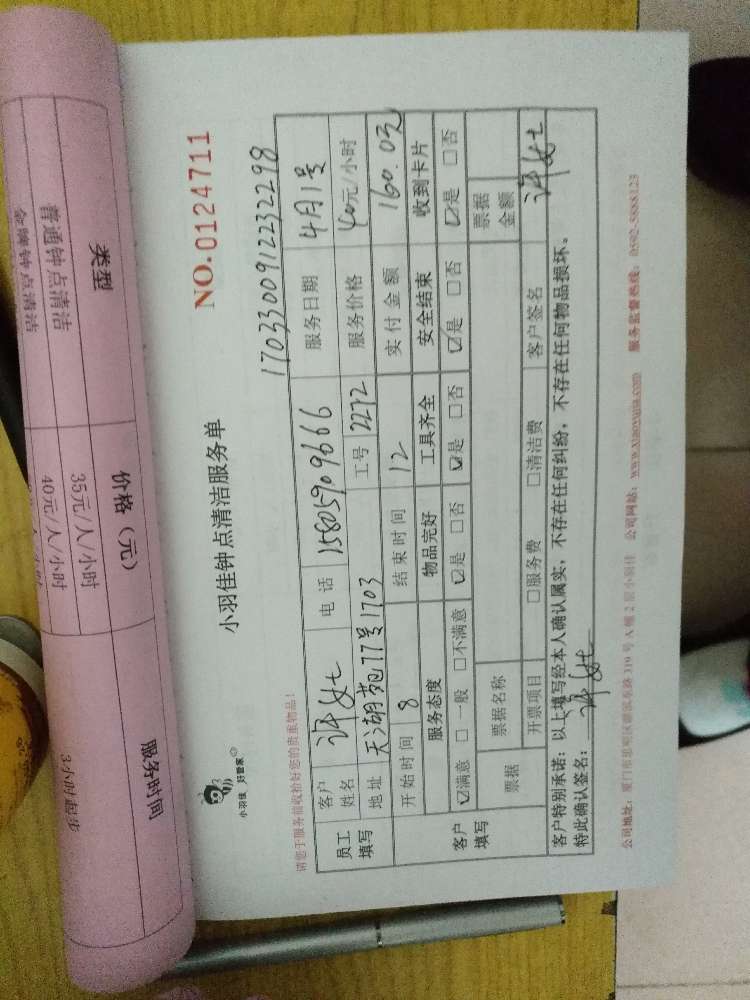 类型
价格（元）
服务时间
普通钟点清洁
35元/人/小时
3小时起步
金牌钟点清洁
40元/人/小时
小羽佳 好管家
小羽佳钟点清洁服务单
NO.0124711
1703300912232298
请您于服务前收拾好您的贵重物品！
员工填写
客户姓名
许女士
电话
15805909666
服务日期
4月1号
地址
天湖苑77号1703
工号
2272
服务价格
40元/小时
开始时间
8
结束时间
12
实付金额
160.0元
客户填写
服务态度
物品完好
工具齐全
安全结束
收到卡片
☑满意 □一般 □不满意
☑是 □否
☑是 □否
☑是 □否
☑是 □否
票据
票据名称
票据金额
开票项目
□服务费 □清洁费
客户签名
许女士
客户特别承诺：以上填写经本人确认属实，不存在任何纠纷，不存在任何物品损坏。
特此确认签名：许女士
公司网站：www.xiaoyujia.com 服务监督热线：0592-5888123